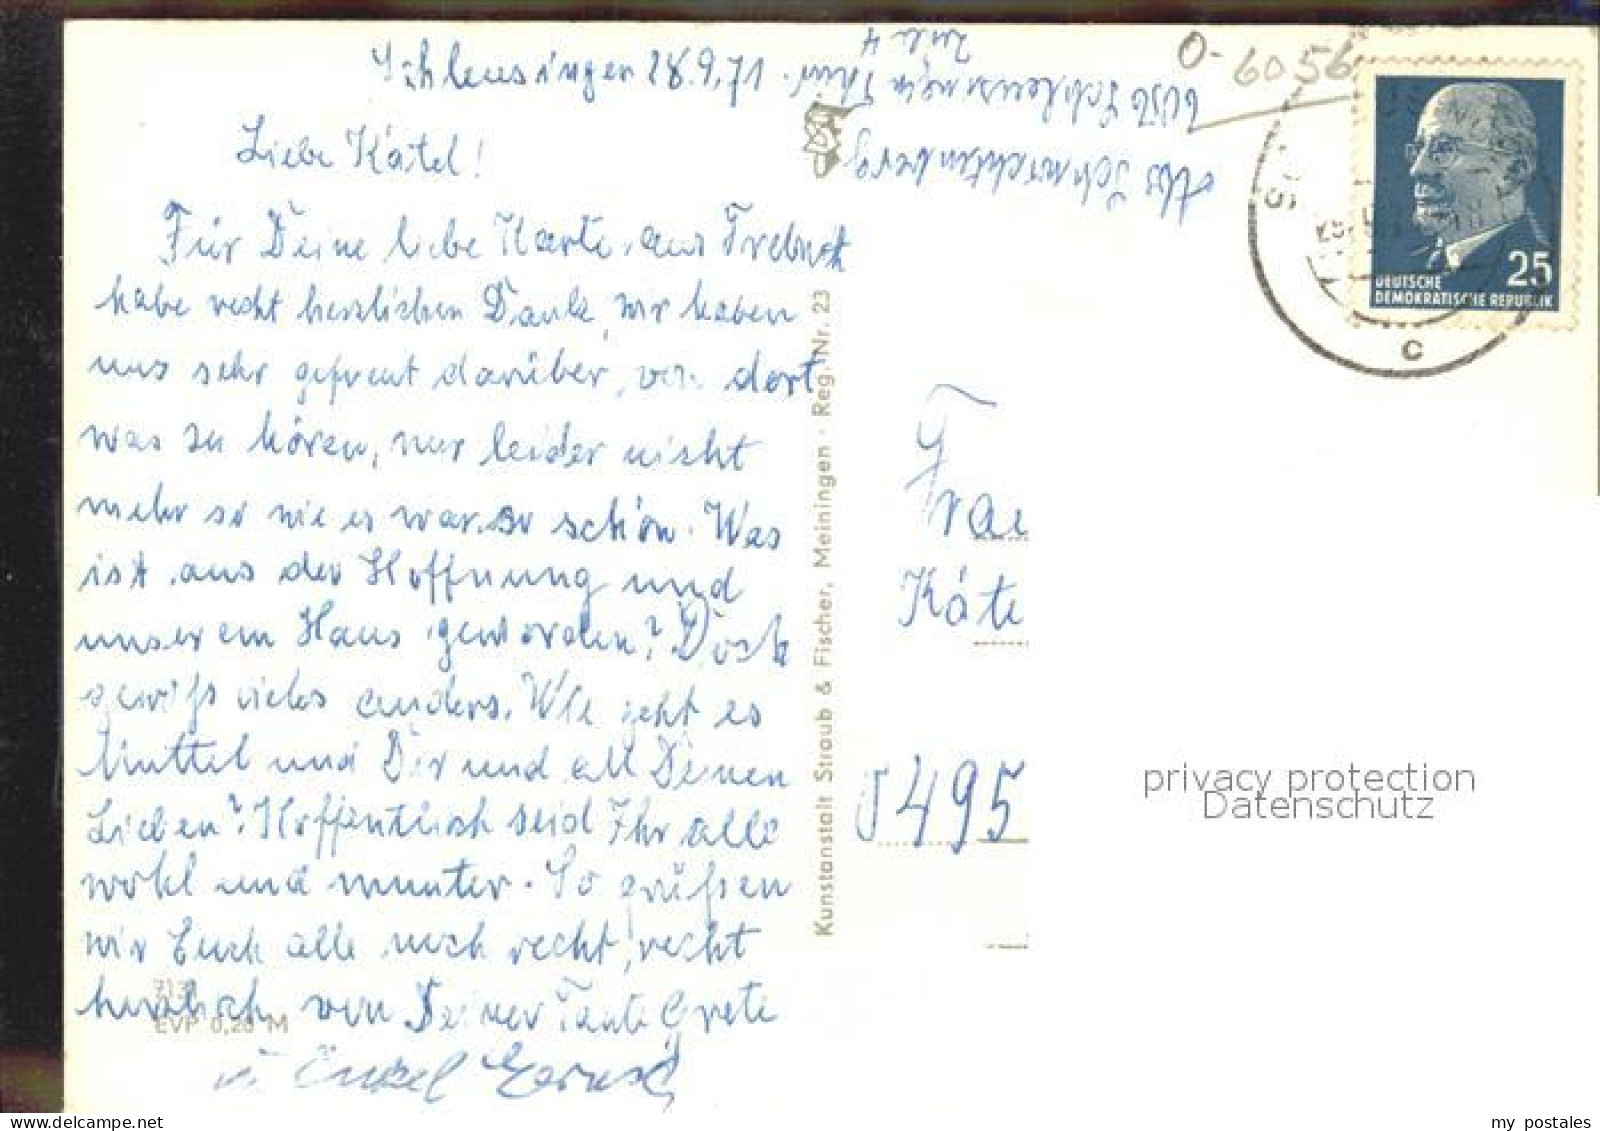 Schleusingen 28.9.71.
Liebe Kätel!
Für Deine liebe Karte aus Trebnitz
habe recht herzlichen Dank, wir haben
uns sehr gefreut darüber, von dort
was zu hören, nur leider nicht
mehr so wie es war so schön. Was
ist aus der Hoffnung und
unserem Haus geworden? Doch
gewiß vieles anders. Wie geht es
Muttel und Dir und all Deinen
Lieben? Hoffentlich seid Ihr alle
wohl und munter. So grüßen
wir Euch alle noch recht, recht
herzlich von Deiner Tante Grete
u. Onkel
Abs
6056 Schleusingen Thür.
O-6056
DEUTSCHE
DEMOKRATISCHE REPUBLIK
25
c
Frau
Käte
495
Kunstanstalt Straub & Fischer, Meiningen · Reg.-Nr. 23
EVP 0,20 M
privacy protection
Datenschutz
my postales